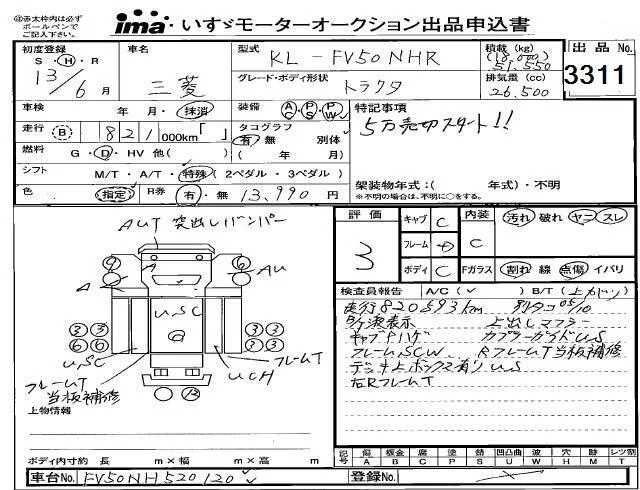 ㊟赤太枠内は必ずボールペンでご記入下さい。
ima・いすゞモーターオークション出品申込書
初度登録 S・H・R 13/6月
車名 三菱
型式 KL-FV50NHR
積載(kg) (18,000) 51,550
出品No. 3311
グレード・ボディ形状 トラクタ
排気量(cc) 26,500
車検 年・月・抹消
装備 AC PS PW
特記事項
5万売切スタート!!
走行 B 821000km「 」
タコグラフ 有・無 別体
( 年 月)
燃料 G・D・HV 他( )
シフト M/T・A/T・特殊(2ペダル・3ペダル)
色 指定 R券 有・無 13,990円
架装物年式:( 年式)・不明
※不明の場合は、不明に○をする。
AUT 突出しバンパー
A
A
AU
U,SC
U,SC
UCH
フレームT
フレームT
当板補修
上物情報
評価 3
キャブ C
フレーム
ボディ C
内装 C
汚れ 破れ ヤニ スレ
Fガラス 割れ 線 点傷 イバリ
検査員報告 A/C(✓) B/T(上がり)
走行820593km 別タコ05/10
上出しマフラー
キャブハゲ カプラーガイドU,S
フレームSCW RフレームT当板補修
デッキ上ボックス有り U,S
左RフレームT
記号 傷A 板金B 腐C 塗P 錆S 凹凸曲U 波W 穴H 跡M レツ割T
ボディ内寸約 長 m×幅 m×高 m
車台No. FV50NH520120
登録No.